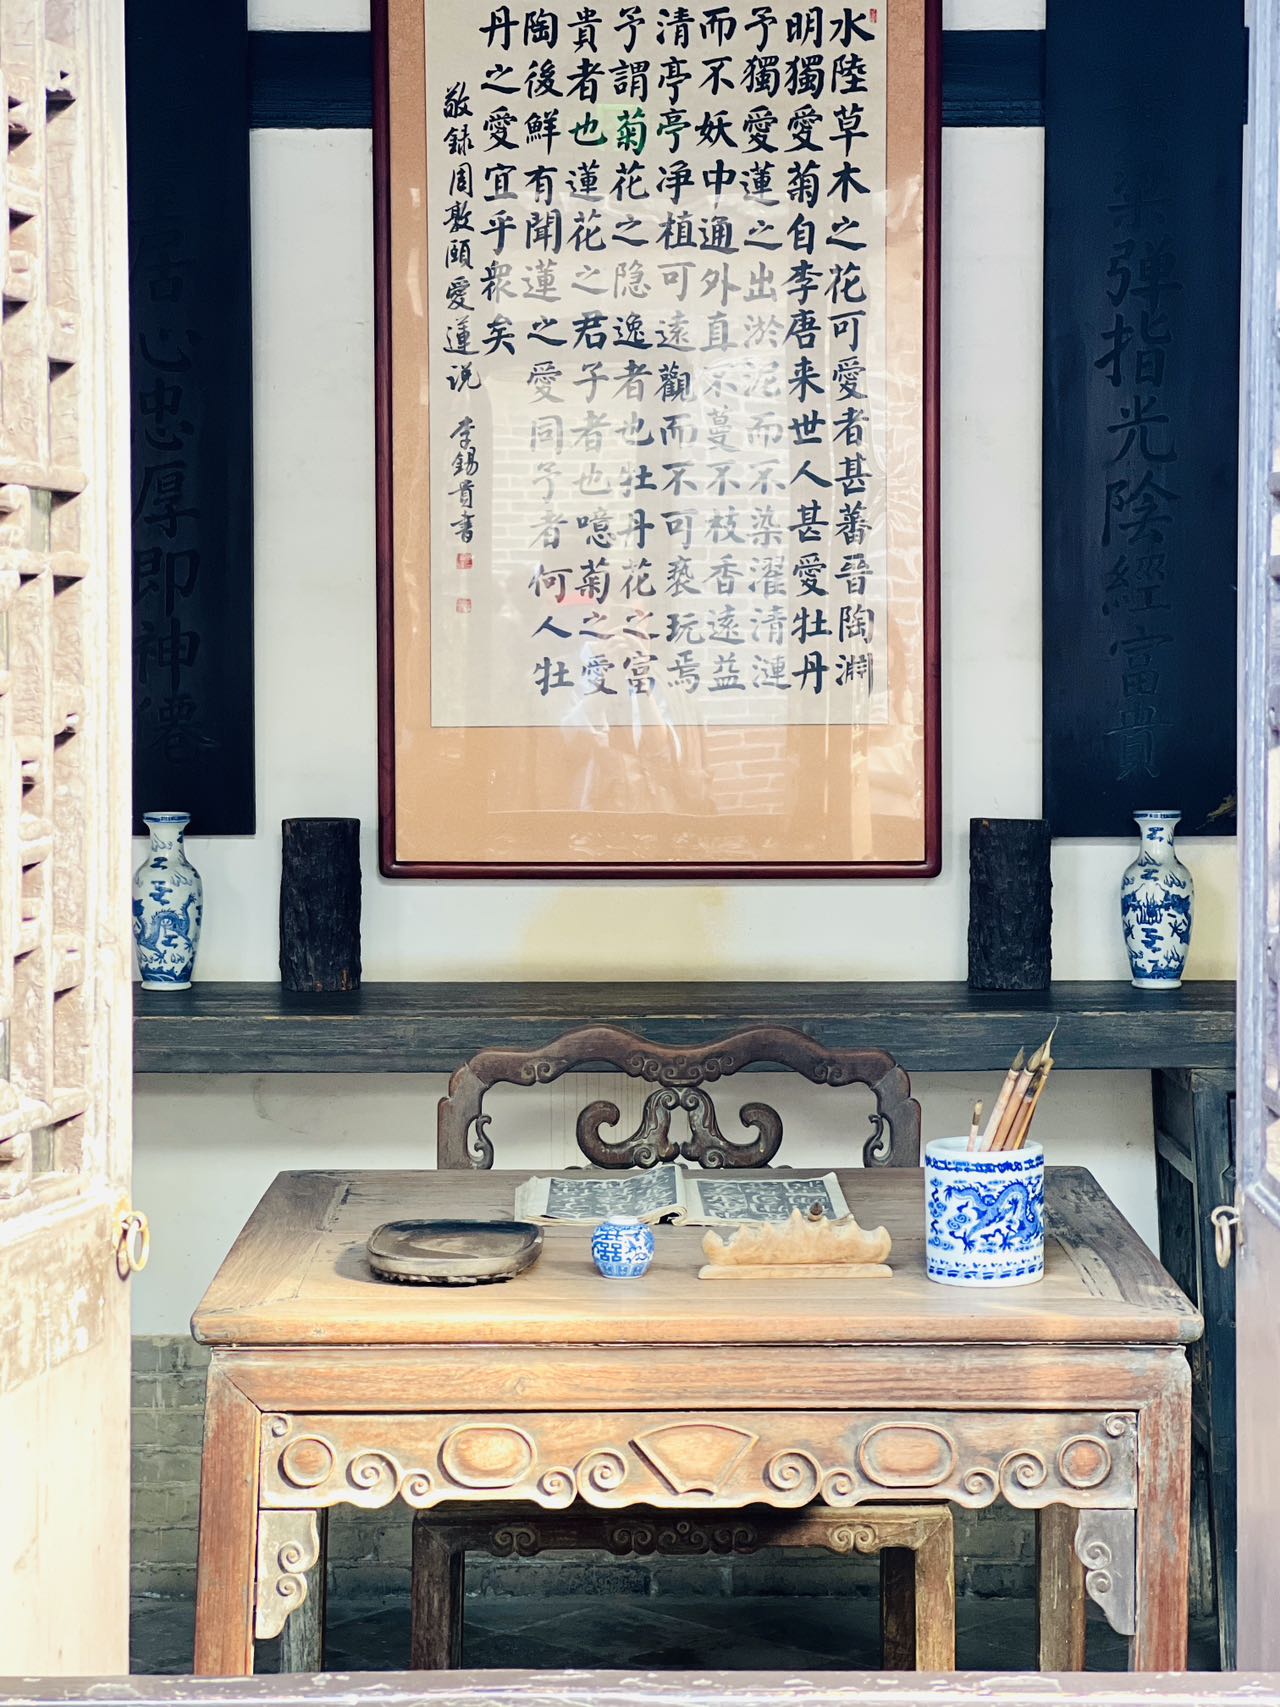 彈指光陰經富貴
水陸草木之花可愛者甚蕃晉陶淵
明獨愛菊自李唐来世人甚愛牡丹
予獨愛蓮之出淤泥而不染濯清漣
而不妖中通外直不蔓不枝香遠益
清亭亭净植可遠觀而不可褻玩焉
予謂菊花之隐逸者也牡丹花之富
貴者也蓮花之君子者也噫菊之愛
陶後鮮有聞蓮之愛同予者何人牡
丹之愛宜乎衆矣
敬録周敦頤愛蓮说 李錫貴書
居心忠厚即神僊